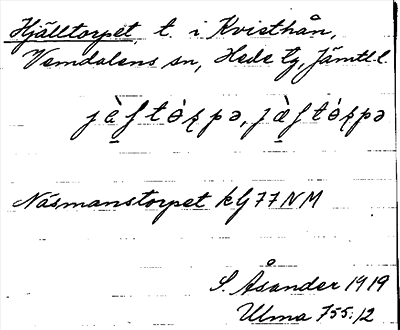 Hjälltorpet, t. i Kvisthån,
Vemdalens sn, Hede tg, Jämtl. l.
Näsmanstorpet kg 77 NM
S. Åsander 1919
Ulma 755:12